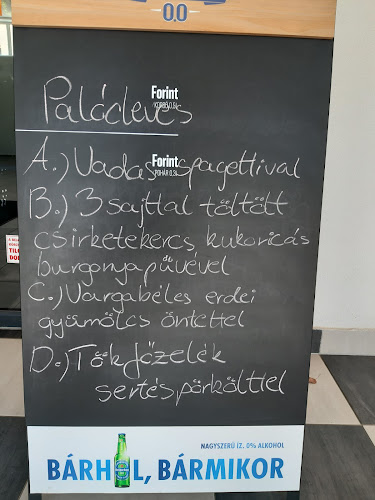 0,0
Forint
KORSÓ 0,5L
Palócleves
Forint
POHÁR 0,3L
A.) Vadas spagettival
B.) 3 sajttal töltött
csirketekercs kukoricás
burgonyapürével
C.) Vargabéles erdei
gyümölcs öntettel
D.) Tökfőzelék
sertéspörkölttel
NAGYSZERŰ ÍZ. 0% ALKOHOL
BÁRHOL, BÁRMIKOR